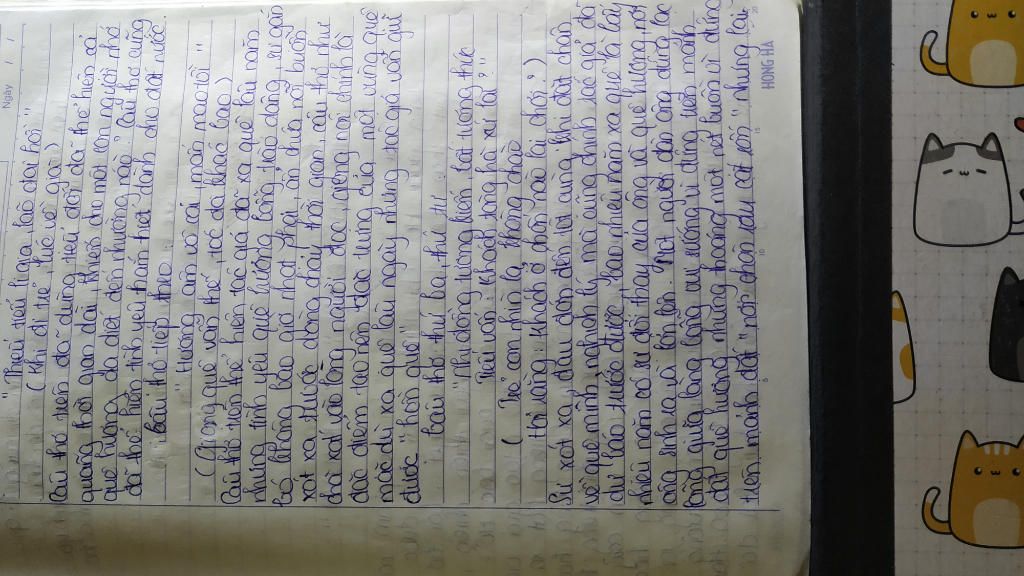 Ngày / /
"Thiếu tiểu li gia, lão đại hồi"
(Khi đi trẻ, lúc về già)
Câu thơ trên đã dùng tiểu đối để thể hiện cả
quãng thời gian dài khiến cho một con người nhớ
quê hương da diết đến nhường nào. Câu thơ cũng
đã thể hiện tình yêu thắm thiết dành cho đất nước
Câu thơ tiếp theo:
"Hương âm vô cải, mấn mao tồi"
(Giọng quê vẫn thế, tóc đà khác bao)
Câu thơ trên thể hiện tác giả đã xa quê lâu năm
nhưng tình yêu quê hương nồng nào cũng
bỏ không bao giờ nhạt phai, ẩn chứa nỗi buồn
xót xa trước dòng chảy thời gian, câu thơ như
chà xát vào lòng người đọc, giọng nói chính là
đặc điểm tạo nên đặc trưng của mỗi vùng quê
mặc dù xa quê lâu ngày nhưng tác giả vẫn giữ
được "hồn quê"
Câu thơ thứ ba, thứ tư
"Nhi đồng tương kiến, bất tương thức
Tiếu vấn: Khách tòng hà xứ lai?"
(Trẻ con nhìn lạ không chào
Hỏi rằng: Khách ở chốn nào lại chơi?)
Sự xót xa, đau đớn đến vô cùng khi đặt chân
về quê mình, nghịch lý mà cũng chính tác giả đã
dự báo trước được, bao nhiêu năm xa quê là bấy
nhiêu năm có sự đổi thay của ông và quê hương, nơi
ông sinh ra và lớn lên. Một người đàn ông đứng lạc
lõng giữa làng, ông vui sướng vì đứng trên mảnh
đất quê hương nhưng thoáng một nét buồn vì đứng
trên mảnh đất "nơi chôn rau cắt rốn" nhưng lại
HONG HA
5
10
15
20